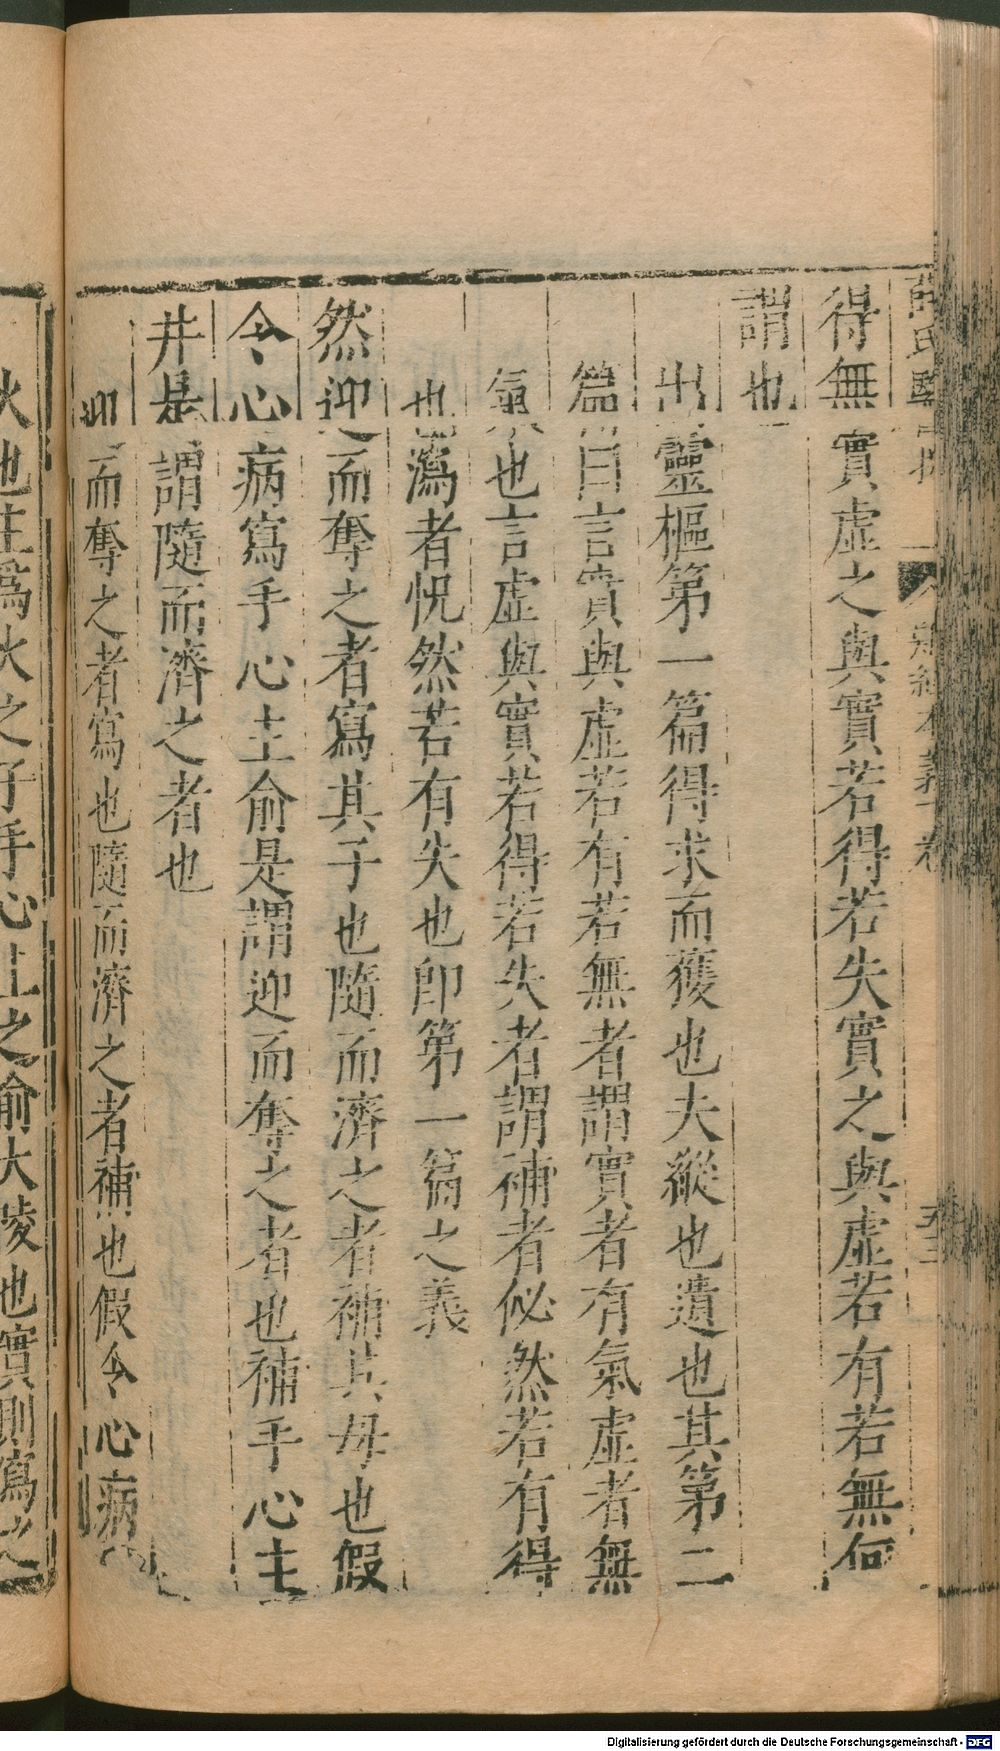 薛氏醫
難經本義下卷
五十三
得無實虛之與實若得若失實之與虛若有若無何
謂也
出靈樞第一篇得求而獲也夫縱也遺也其第二
篇曰言實與虛若有若無者謂實者有氣虛者無
氣也言虛與實若得若失者謂補者佖然若有得
也瀉者怳然若有失也卽第一篇之義
然迎之而奪之者寫其子也隨而濟之者補其母也假
令心病寫手心主俞是謂迎而奪之者也補手心主
井是謂隨而濟之者也
迎而奪之者寫也隨而濟之者補也假令心病
火也土爲火之子手心主之俞大陵也實則寫之
Digitalisierung gefördert durch die Deutsche Forschungsgemeinschaft - DFG